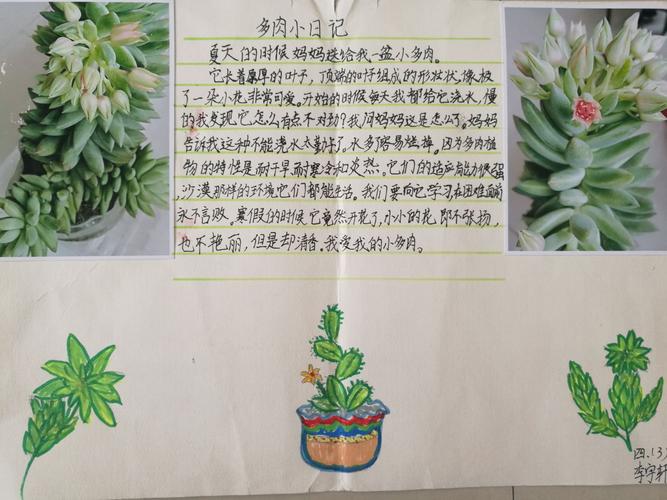 多肉小日记
夏天的时候妈妈送给我一盆小多肉。
它长着厚厚的叶子，顶端的叶子组成的形状,像极
了一朵小花,非常可爱。开始的时候每天我都给它浇水,慢
的我发现它怎么有点不对劲?我问妈妈这是怎么了。妈妈
告诉我这种不能浇水太勤了。水多容易烂掉。因为多肉植
物的特性是耐干旱、耐寒冷和炎热。它们的适应能力很强
,沙漠那样的环境它们都能生活。我们要向它学习,在困难面前
永不言败。寒假的时候它竟然开花了,小小的花,即不张扬,
也不艳丽，但是却清香。我爱我的小多肉。
四.(3)
李宇轩